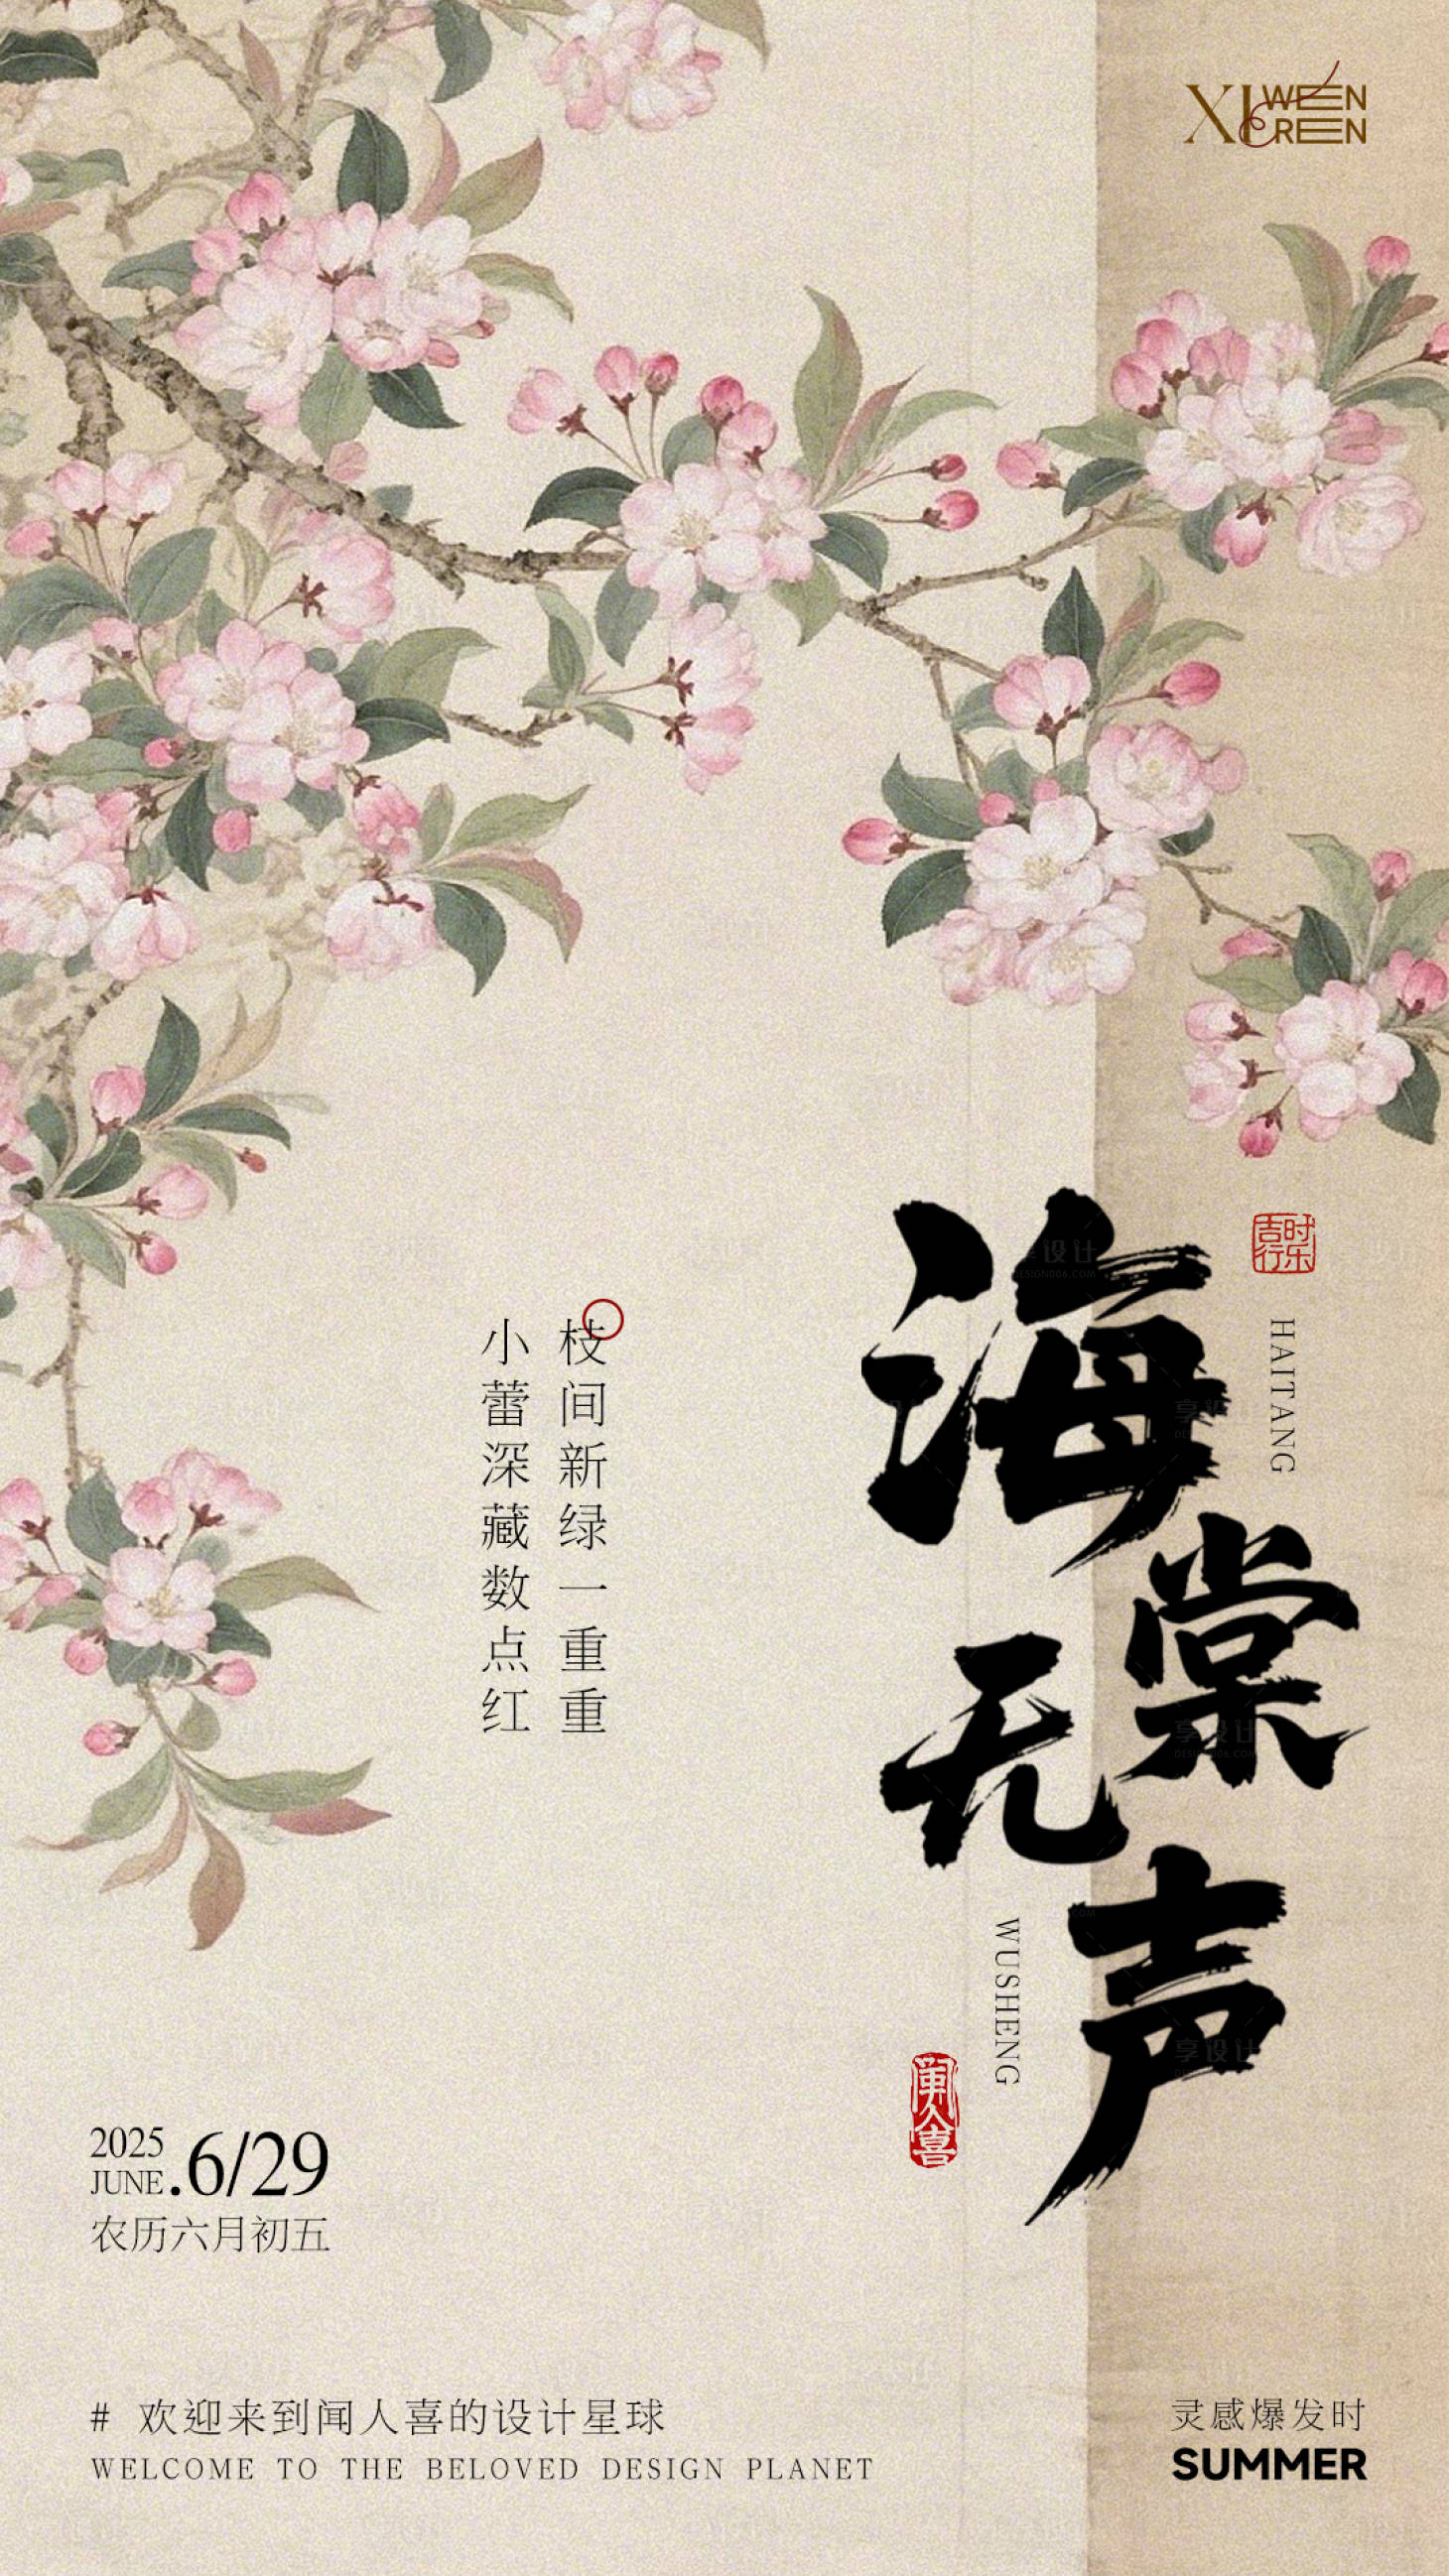 XI WEN
REN
时乐
吉行
海棠
无声
HAITANG
WUSHENG
闻人喜
枝间新绿一重重
小蕾深藏数点红
2025
JUNE.6/29
农历六月初五
# 欢迎来到闻人喜的设计星球
WELCOME TO THE BELOVED DESIGN PLANET
灵感爆发时
SUMMER
享设计
DESIGN006.COM